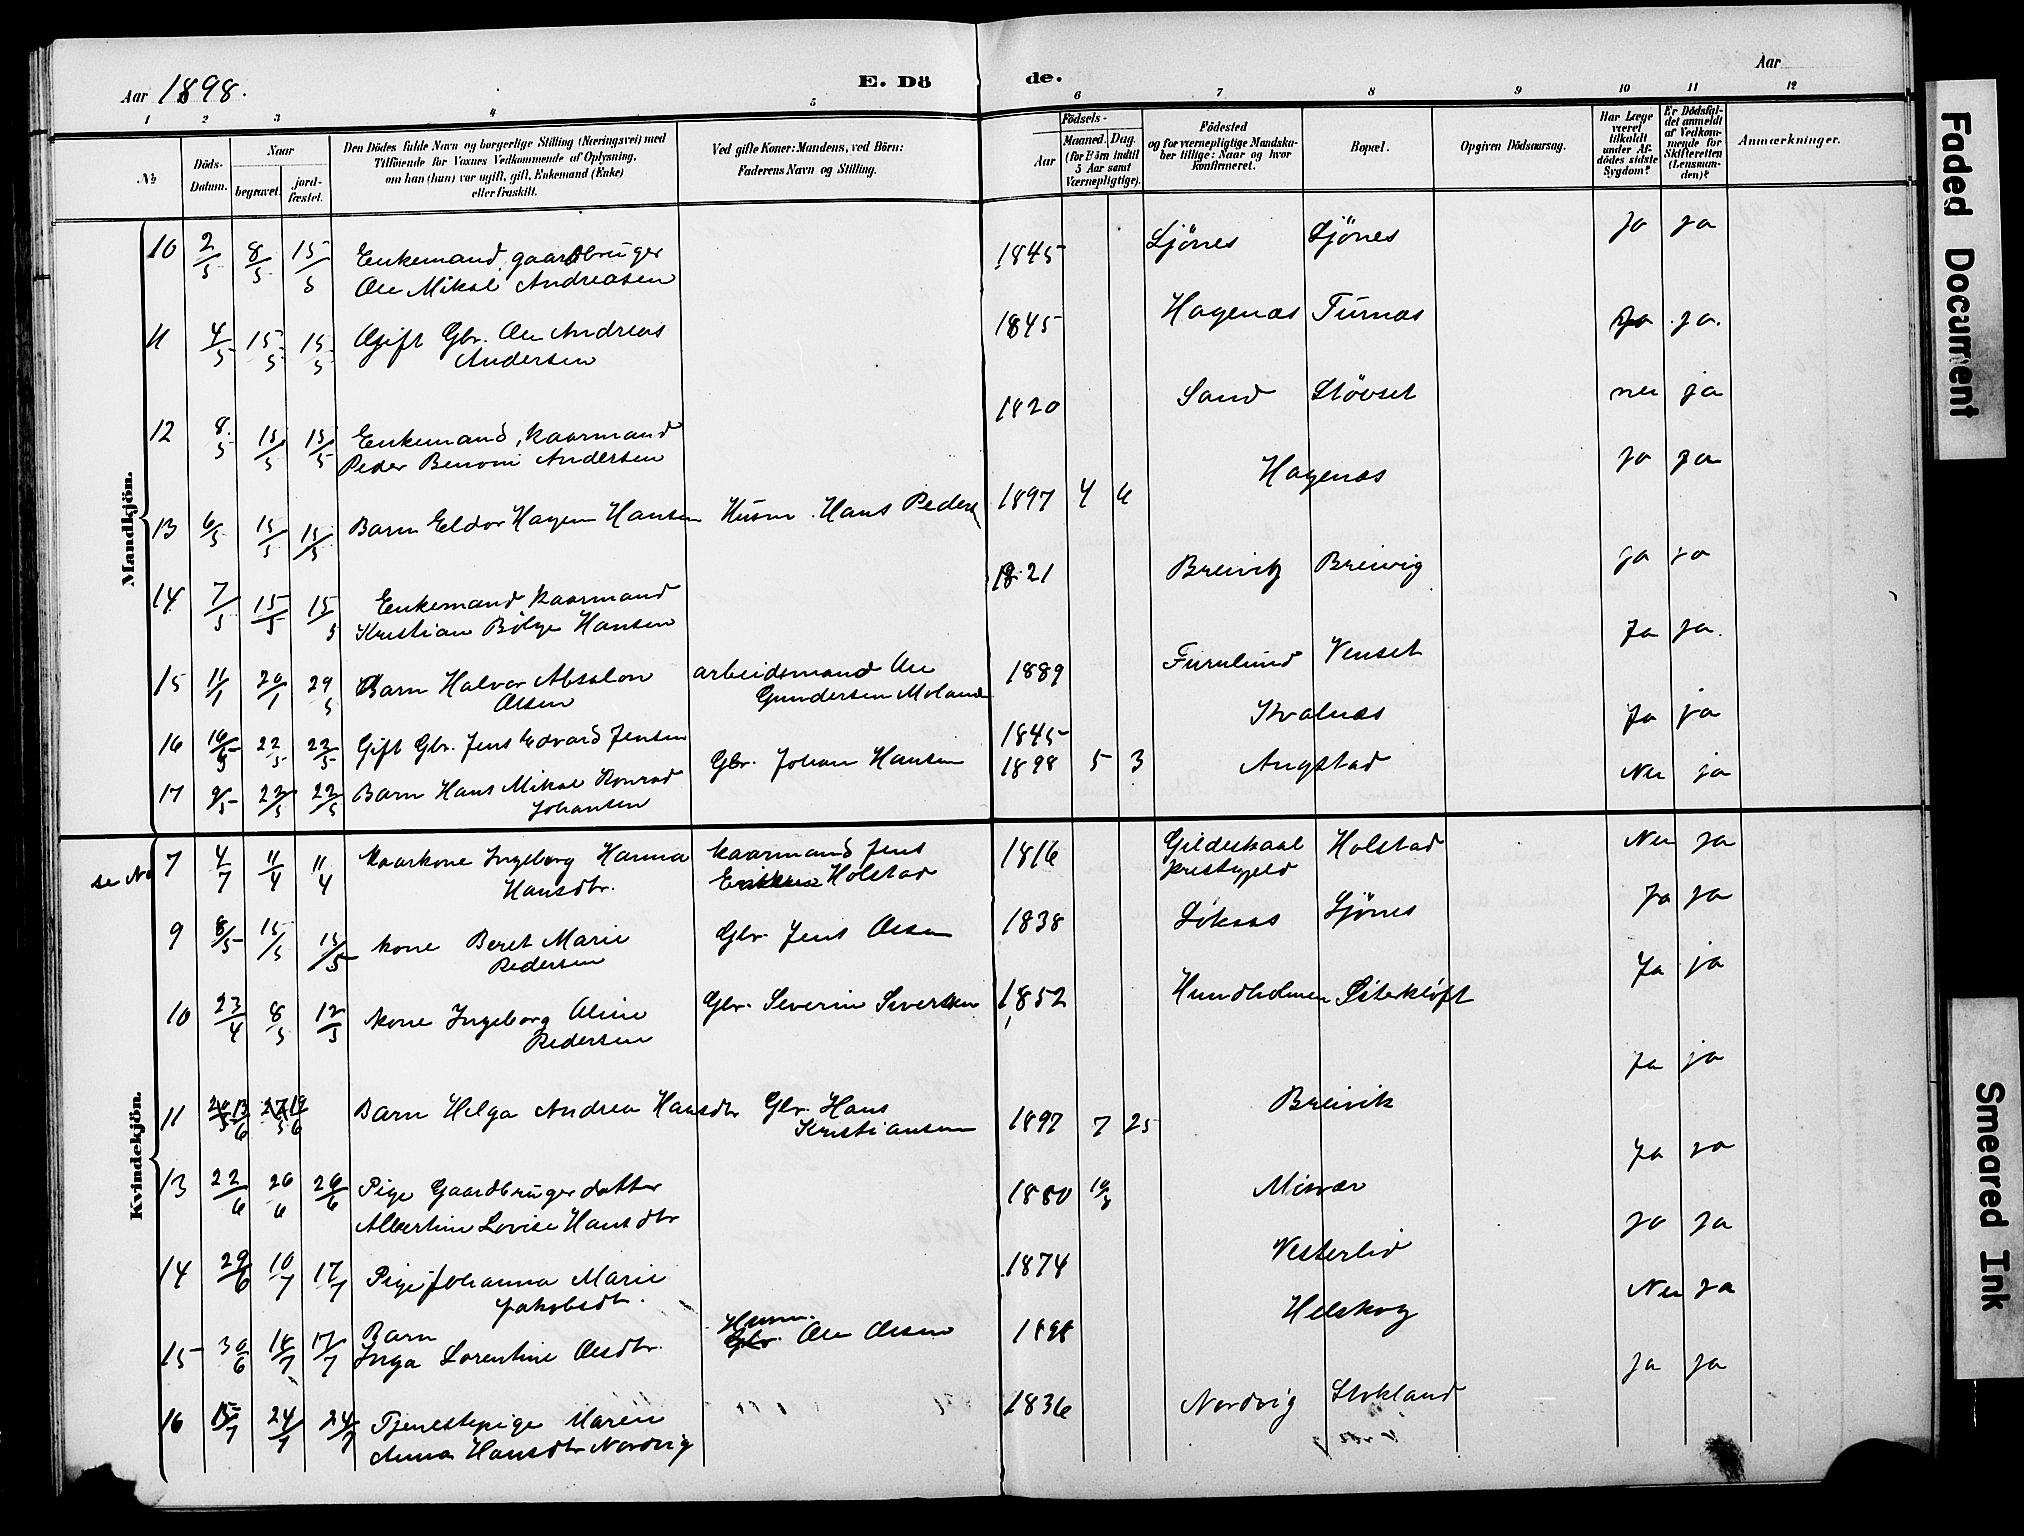 Aar 1898.
E. Dö de.
Aar
1 2 3 4 5 6 7 8 9 10 11 12
№
Döds-Datum.
Naar
begravet.
jord-fæstet.
Den Dödes fulde Navn og borgerlige Stilling (Næringsvei) med
Tilföiende for Voxnes Vedkommende af Oplysning,
om han (hun) var ugift, gift, Enkemand (Enke)
eller fraskilt.
Ved gifte Koner: Mandens, ved Börn:
Faderens Navn og Stilling.
Födsels-
Aar
Maaned. Dag.
(for Börn indtil
5 Aar samt
Værnepligtige).
Födested
og for værnepligtige Mandska-
ber tillige: Naar og hvor
konfirmeret.
Bopæl.
Opgiven Dödsaarsag.
Har Læge
været
tilkaldt
under Af-
dödes sidste
Sygdom?
Er Dödsfal-
det anmeldt
af Vedkom-
mende for
Skifteretten
(Lensman-
den)?
Anmærkninger.
Mandkjön.
10 2/5 8/5 15/5 Enkemand, gaardbruger 1845 Ljönes Ljönes Ja ja
Ole Mikal Andreasen
11 4/5 15/5 15/5 Gift Gbr. Ole Andreas 1845 Hagenæs Furnæs ja.
Andersen
12 8/5 15/5 15/5 Enkemand, kaarmand 1820 Sand Stövset nei ja
Peder Benoni Andersen
13 6/5 15/5 15/5 Barn Eldor Hagen Hansen Husm. Hans Peders 1897 4 6 Hagenæs Ja ja
14 7/5 15/5 15/5 Enkemand kaarmand 1821 Breivik Breivig ja ja
Kristian Bölge Hansen
15 11/1 20/1 29/5 Barn Halvor Absalon arbeidsmand Ole 1889 Furulund Venset Ja ja.
Olsen Gundersen Moland
16 16/5 22/5 22/5 Gift Gbr. Jens Edvard Jensen 1845 Kvalnæs Ja ja
17 9/5 22/5 22/5 Barn Hans Mikal Konrad Gbr. Johan Hansen 1898 5 3 Angstad Nei ja
Johansen
Kvindekjön.
se No 7 4/7 11/4 11/4 Kaarkone Ingeborg Hanna Kaarmand Jens 1816 Gildeskaal Holstad Nei Ja
Hansdtr. Holstad prestegjeld
9 8/5 15/5 15/5 Kone Beret Marie Gbr. Jens Olsen 1838 Löksæs Ljönes Ja ja
Pedersen
10 23/4 8/5 12/5 Kone Ingeborg Oline Gbr. Severin Sivertsen 1852 Hundholmen Ja ja
Pedersen
11 13/6 19/6 Barn Helga Andrea Hansdtr Gbr. Hans 1897 7 25 Breivik Ja ja
Kristiansen
13 22/6 26/6 26/6 Pige Gaardbrugerdatter 1880 Misvær Ja ja
Albertine Lovise Hansdtr
14 29/6 10/7 17/7 Pige Johanna Marie 1874 Vesterlid Ja ja
Jakobsdtr.
15 30/6 17/7 Barn Husm. 1898 Helskog Nei ja
Inga Lorentine Olsdtr. Gbr. Ole Olsen
16 15/7 24/7 24/7 Tjenestepige Maren 1836 Nordvig Stokland Ja ja
Anna Hansdtr Nordvig
Faded Document
Smeared Ink